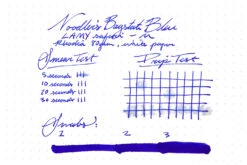 Noodler's Baystate Blue
LAMY safari - M
Rhodia 80gsm, white paper
Smear Test
Drip Test
5 seconds
10 seconds
20 seconds
30 seconds
Swabs:
1 2 3